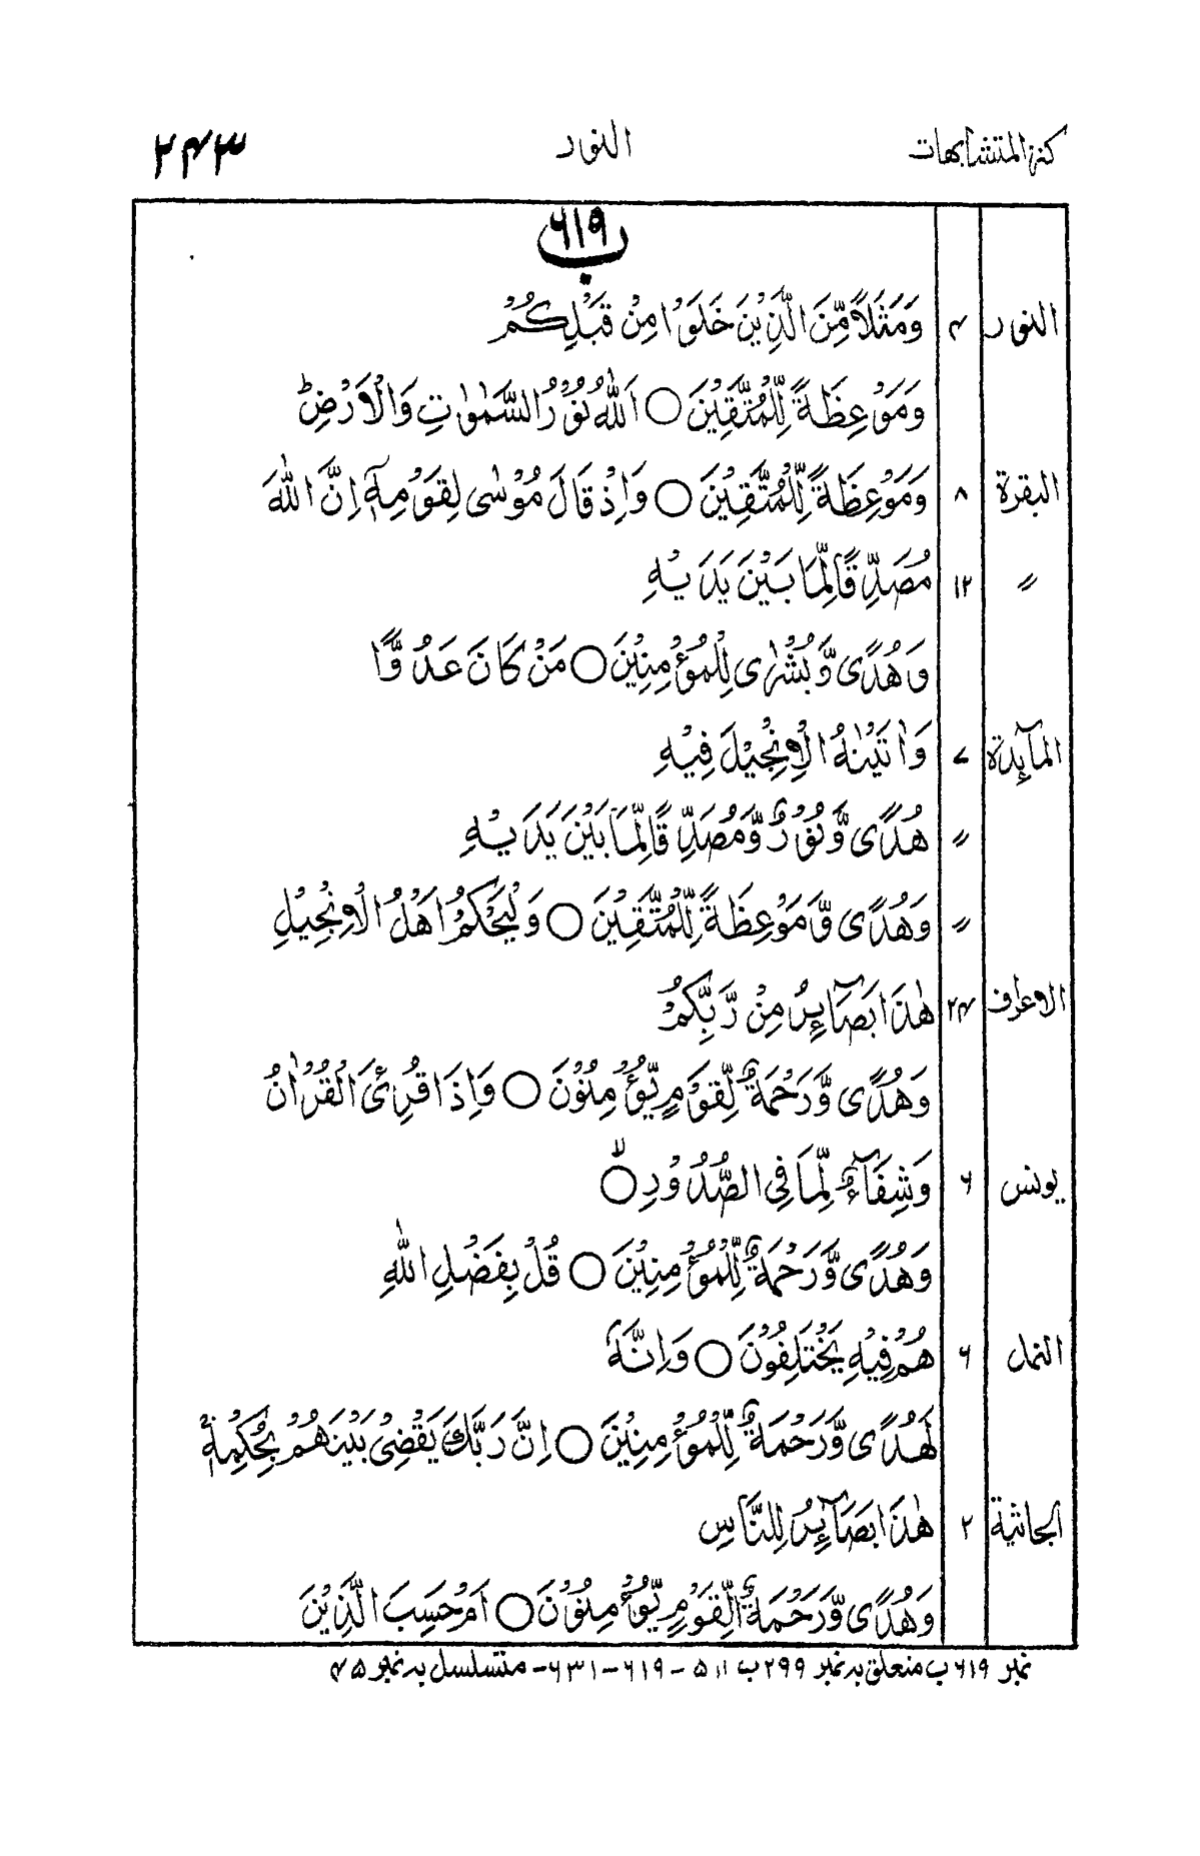 كنز المتشابهات النور ۲۴۳
۶۱۹ ب
النور ۴ وَمَثَلًا مِّنَ الَّذِيْنَ خَلَوْا مِنْ قَبْلِكُمْ
وَمَوْعِظَةً لِّلْمُتَّقِيْنَ ○ اَللّٰهُ نُوْرُ السَّمٰوٰتِ وَالْاَرْضِ ؕ
البقرة ۸ وَمَوْعِظَةً لِّلْمُتَّقِيْنَ ○ وَاِذْ قَالَ مُوْسٰى لِقَوْمِهٖٓ اِنَّ اللّٰهَ
〃 ۱۲ مُصَدِّقًا لِّمَا بَيْنَ يَدَيْهِ
وَهُدًى وَّبُشْرٰى لِلْمُؤْمِنِيْنَ ○ مَنْ كَانَ عَدُوًّا
المآئدة ۷ وَاٰتَيْنٰهُ الْاِنْجِيْلَ فِيْهِ
〃 هُدًى وَّنُوْرٌ وَّمُصَدِّقًا لِّمَا بَيْنَ يَدَيْهِ
〃 وَهُدًى وَّمَوْعِظَةً لِّلْمُتَّقِيْنَ ○ وَلْيَحْكُمْ اَهْلُ الْاِنْجِيْلِ
الاعراف ۲۴ هٰذَا بَصَآئِرُ مِنْ رَّبِّكُمْ
وَهُدًى وَّرَحْمَةٌ لِّقَوْمٍ يُّؤْمِنُوْنَ ○ وَاِذَا قُرِئَ الْقُرْاٰنُ
يونس ۶ وَشِفَآءٌ لِّمَا فِى الصُّدُوْرِ ○ ۙ
وَهُدًى وَّرَحْمَةٌ لِّلْمُؤْمِنِيْنَ ○ قُلْ بِفَضْلِ اللّٰهِ
النمل ۶ هُمْ فِيْهِ يَخْتَلِفُوْنَ ○ وَاِنَّهٗ
لَهُدًى وَّرَحْمَةٌ لِّلْمُؤْمِنِيْنَ ○ اِنَّ رَبَّكَ يَقْضِىْ بَيْنَهُمْ بِحُكْمِهٖ ۚ
الجاثية ۲ هٰذَا بَصَآئِرُ لِلنَّاسِ
وَهُدًى وَّرَحْمَةٌ لِّقَوْمٍ يُّوْمِنُوْنَ ○ اَمْ حَسِبَ الَّذِيْنَ
نمبر ۶۱۹ ب متعلق بہ نمبر ۲۹۹ ب ۵۱۱ - ۶۱۹ - ۶۳۱ - متسلسل بہ نمبر ۴۵